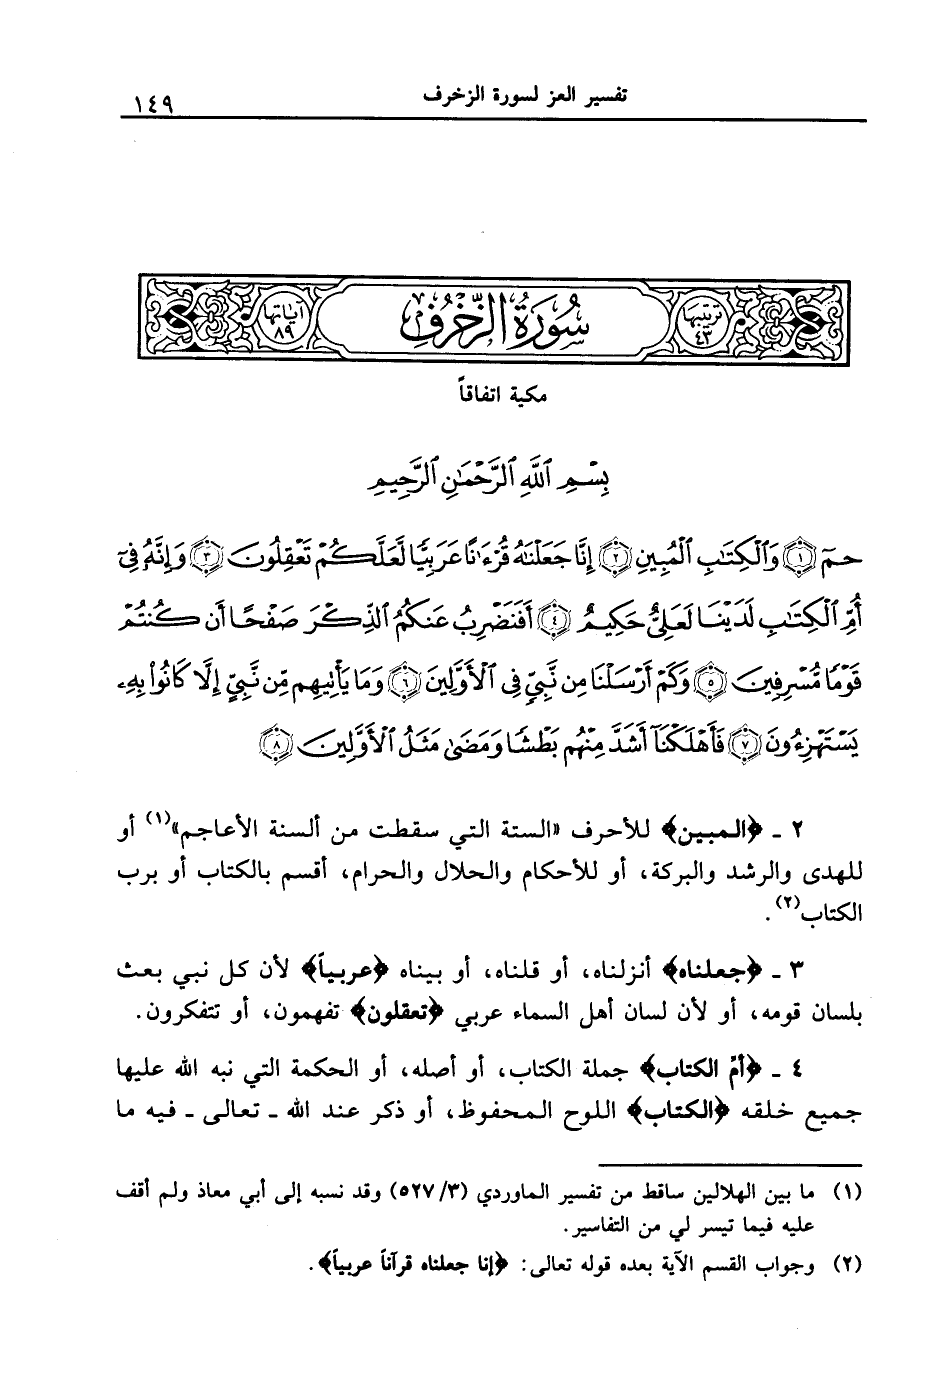 تفسير العز لسورة الزخرف
١٤٩
ترتيبها ٤٣
سُورَةُ الزُّخْرُفِ
آياتها ٨٩
مكية اتفاقاً
بِسْمِ ٱللَّهِ ٱلرَّحْمَٰنِ ٱلرَّحِيمِ
حمٓ ۝١ وَٱلْكِتَٰبِ ٱلْمُبِينِ ۝٢ إِنَّا جَعَلْنَٰهُ قُرْءَٰنًا عَرَبِيًّا لَّعَلَّكُمْ تَعْقِلُونَ ۝٣ وَإِنَّهُۥ فِىٓ
أُمِّ ٱلْكِتَٰبِ لَدَيْنَا لَعَلِىٌّ حَكِيمٌ ۝٤ أَفَنَضْرِبُ عَنكُمُ ٱلذِّكْرَ صَفْحًا أَن كُنتُمْ
قَوْمًا مُّسْرِفِينَ ۝٥ وَكَمْ أَرْسَلْنَا مِن نَّبِىٍّ فِى ٱلْأَوَّلِينَ ۝٦ وَمَا يَأْتِيهِم مِّن نَّبِىٍّ إِلَّا كَانُوا۟ بِهِۦ
يَسْتَهْزِءُونَ ۝٧ فَأَهْلَكْنَآ أَشَدَّ مِنْهُم بَطْشًا وَمَضَىٰ مَثَلُ ٱلْأَوَّلِينَ ۝٨
٢ ـ ﴿المبين﴾ للأحرف «الستة التي سقطت من ألسنة الأعاجم»(١) أو
للهدى والرشد والبركة، أو للأحكام والحلال والحرام، أقسم بالكتاب أو برب
الكتاب(٢).
٣ ـ ﴿جعلناه﴾ أنزلناه، أو قلناه، أو بيناه ﴿عربياً﴾ لأن كل نبي بعث
بلسان قومه، أو لأن لسان أهل السماء عربي ﴿تعقلون﴾ تفهمون، أو تتفكرون.
٤ ـ ﴿أمّ الكتاب﴾ جملة الكتاب، أو أصله، أو الحكمة التي نبه الله عليها
جميع خلقه ﴿الكتاب﴾ اللوح المحفوظ، أو ذكر عند الله ـ تعالى ـ فيه ما
(١) ما بين الهلالين ساقط من تفسير الماوردي (٣/ ٥٢٧) وقد نسبه إلى أبي معاذ ولم أقف
عليه فيما تيسر لي من التفاسير.
(٢) وجواب القسم الآية بعده قوله تعالى: ﴿إنا جعلناه قرآناً عربياً﴾.